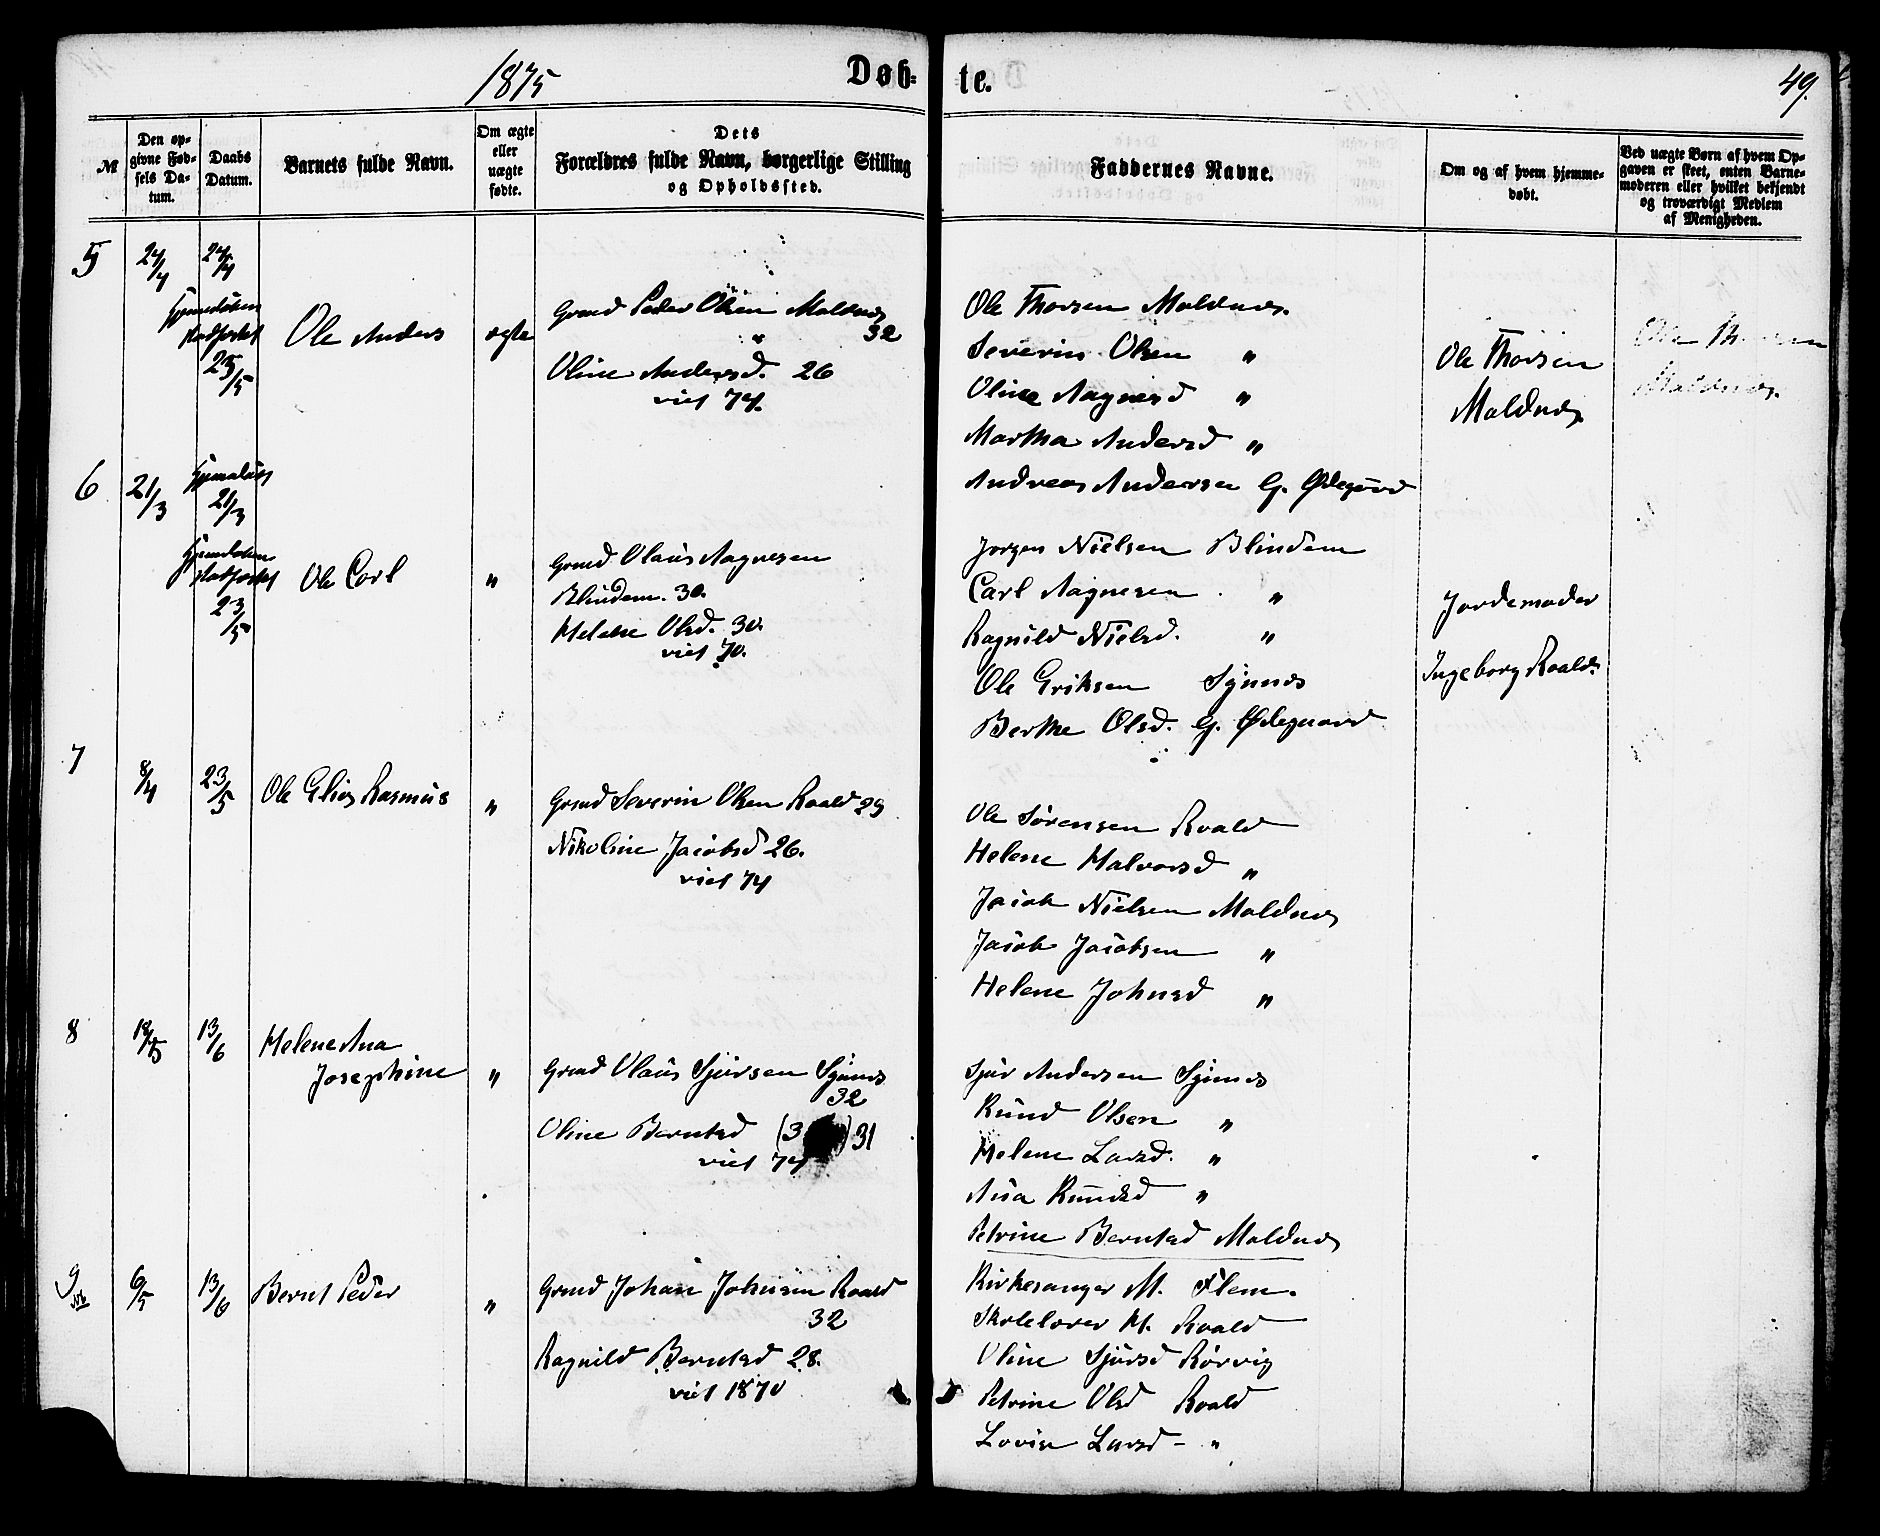 1875
Døb-
te.
49.
№
Den op-
givne Fød-
sels Da-
tum.
Daabs
Datum.
Barnets fulde Navn.
Om ægte
eller
uægte
fødte.
Dets
Forældres fulde Navn, borgerlige Stilling
og Opholdssted.
Faddernes Navne.
Om og af hvem hjemme-
døbt.
Ved uægte Børn af hvem Op-
gaven er skeet, enten Barne-
moderen eller hvilket bekjendt
og troværdigt Medlem
af Menigheden.
5
24/4
24/4
stadfæstet
23/5
Ole Anders
ægte
Grmd Peder Olsen Moldnæs
" 32
Oline Andersd. 26
viet 74.
Ole Thorsen Moldnæs.
Severin Olsen "
Oline Aagnesd "
Martha Andersd "
Andreas Andersen G. Ødegård
Ole Thorsen
Moldnæs
Ole Thorsen
Moldnæs.
6
21/3
Hjemdøbt
21/3
stadfæstet
23/5
Ole Carl
"
Grmd Olaus Aagnesen
Blindem. 30.
Helene Olsd. 30.
viet 70.
Jørgen Nielsen Blindem
Carl Aagnesen "
Ragnild Nielsd. "
Ole Eriksen Synnes
Berthe Olsd. G. Ødegaard
Jordemoder
Ingeborg Roald.
7
8/4
23/5
Ole Elias Rasmus
"
Grmd Severin Olsen Roald 29
Nikoline Jacobsd 26.
viet 74
Ole Sørensen Roald
Helene Halvorsd "
Jacob Nielsen Moldnæs
Jacob Jacobsen "
Helene Johnsd "
8
18/5
13/6
Helene Ana
Josephine
"
Grmd Olaus Sjursen Synnes
32
Oline Berntsd (3 ) 31
viet 74
Sjur Andersen Synnes
Knud Olsen "
Helene Larsd. "
Ana Knudsd "
Petrine Berntsd Moldnæs
9
6/5
13/6
Bernt Peder
"
Grmd Johan Johnsen Roald
32
Ragnild Berntsd 28.
viet 1870
Kirkesanger M. Flem.
Skolelærer H. Roald
Oline Sjursd Rørvig
Petrine Olsd Roald
Lovise Larsd - "